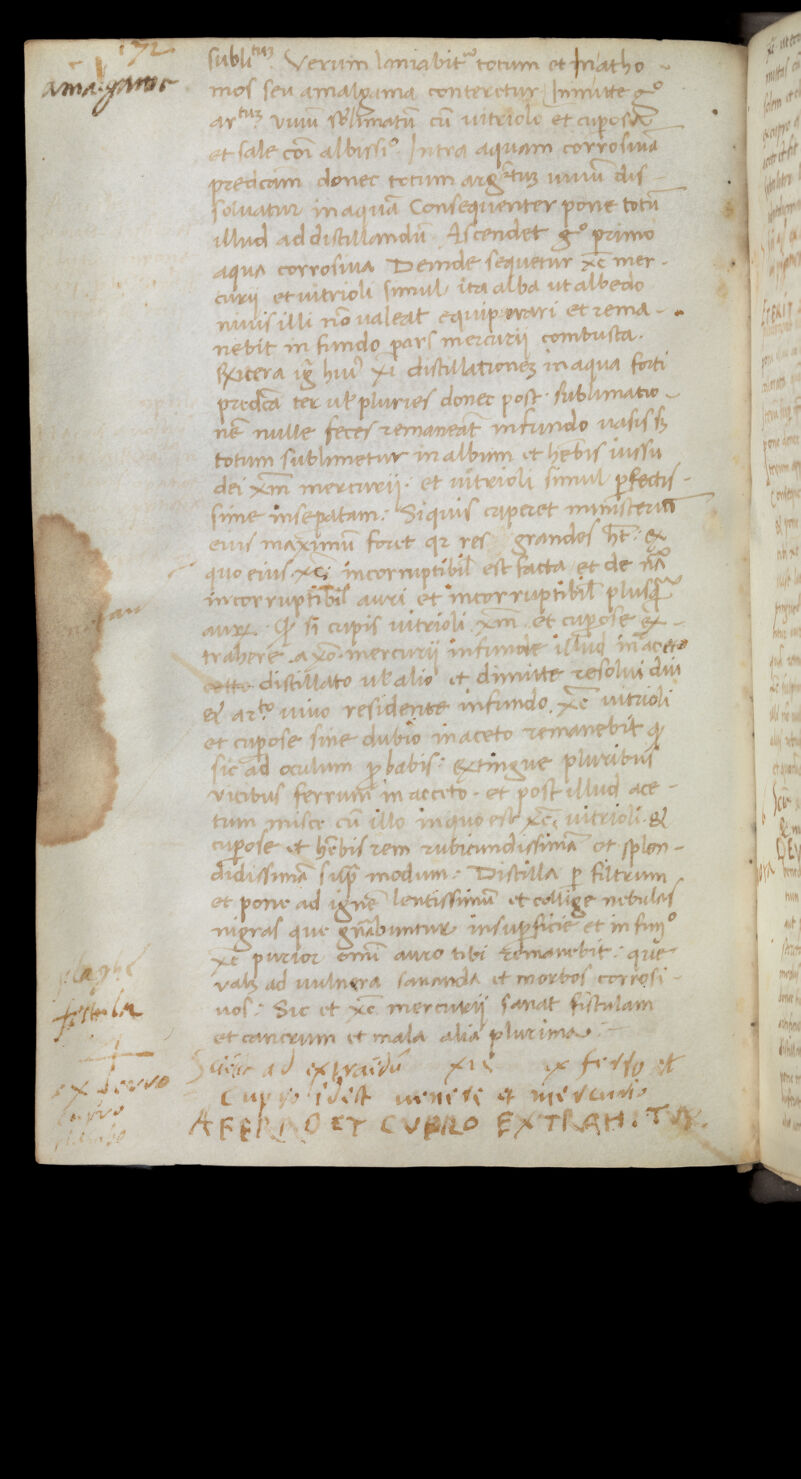 172
amalgame
subli^tuz. Verum laniabit^r totum et in atho-
mos seu amalgama conteretur Inmitte g°
ar^tuz vivū sublimatū cū vitriolo et cuposa
et sale cōi albissi°. Intra aquam corrosivā
predcam donec totum arg^tuz vivū dis-
solvatur in aquā Consequenter pone totū
illud ad distillandū Ascendet g° primo
aqua corrosiva Deinde sequetur xc̄ mer-
curij et vitrioli simul ita alba ut albedo
nivis illi nō valeat equiparari et rema-
nebit in fundo pars mercurii combusta.
distillationez in aqua forti
predcā ter ul pluries donec post sublimatio-
nē nulle feces remaneāt in fundo vasis sz
totum sublimetur in album et hēbis iussu
dei xm̄ mercurij. et vitrioli simul pfectis-
sime insepatam: Siquis caperet ministeriū
eius maximū foret qr res grandes ht: ex
quo eius xc̄ incorruptibil est facta et de nā
incorruptibil auri et incorruptibil plusq̄
si cupis vitrioli xm̄ et cupose ex-
trahere a x° mercurii infunde illud in aceto
distillato ul alio et dimitte resolvi diu
Et ar^to vivo residente in fundo. xc̄ vitrioli
et cupose sine dubio in aceto remanebit
sic ad oculum pbabis: extingue pluribus
vicibus ferrum in acceto. et post illud ace-
tum misce cū illo in quo est xc̄ vitrioli. et
cupose et hēbis rem rubicundissimā et splen-
didissimā sup modum: Distilla p filtrum
et pone ad ignē lentissimū et collige nebulas
nigras que gnābuntur in supficie et in fun°
xc̄ purior enī auro tibi remanebit: que
valz ad vulnera sananda et morbos corrosi-
vos: Sic et xc̄ mercurij sanat fistulam
et cancrum et mala alia plurima.
plaghe
fistula
ad extraēdū ex ferro et
Cupro idest venere et mercurio
ex ferro
A FERRO ET CVPRO EXTRAHITVR.